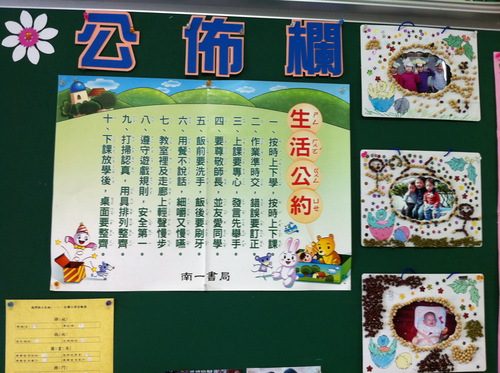 公佈欄
生活公約
一、按時上下學，按時上下課
二、作業準時交，錯誤要訂正
三、上課要專心，發言先舉手
四、要尊敬師長，並友愛同學
五、飯前要洗手，飯後要刷牙
六、用餐不說話，細嚼又慢嚥
七、教室裡及走廊上輕聲慢步
八、遵守遊戲規則，安全第一
九、打掃認真，用具排列整齊
十、下課放學後，桌面要整齊
南一書局